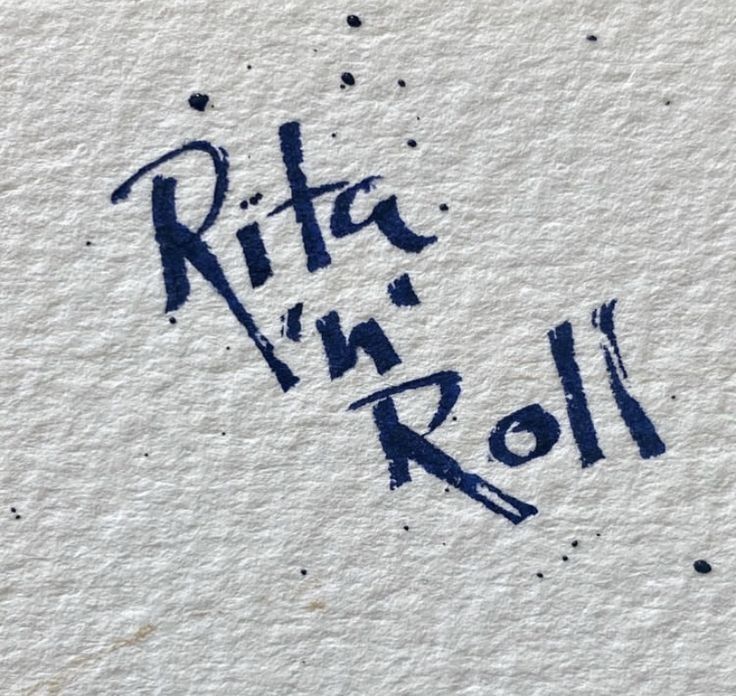 Rita
'n'
Roll